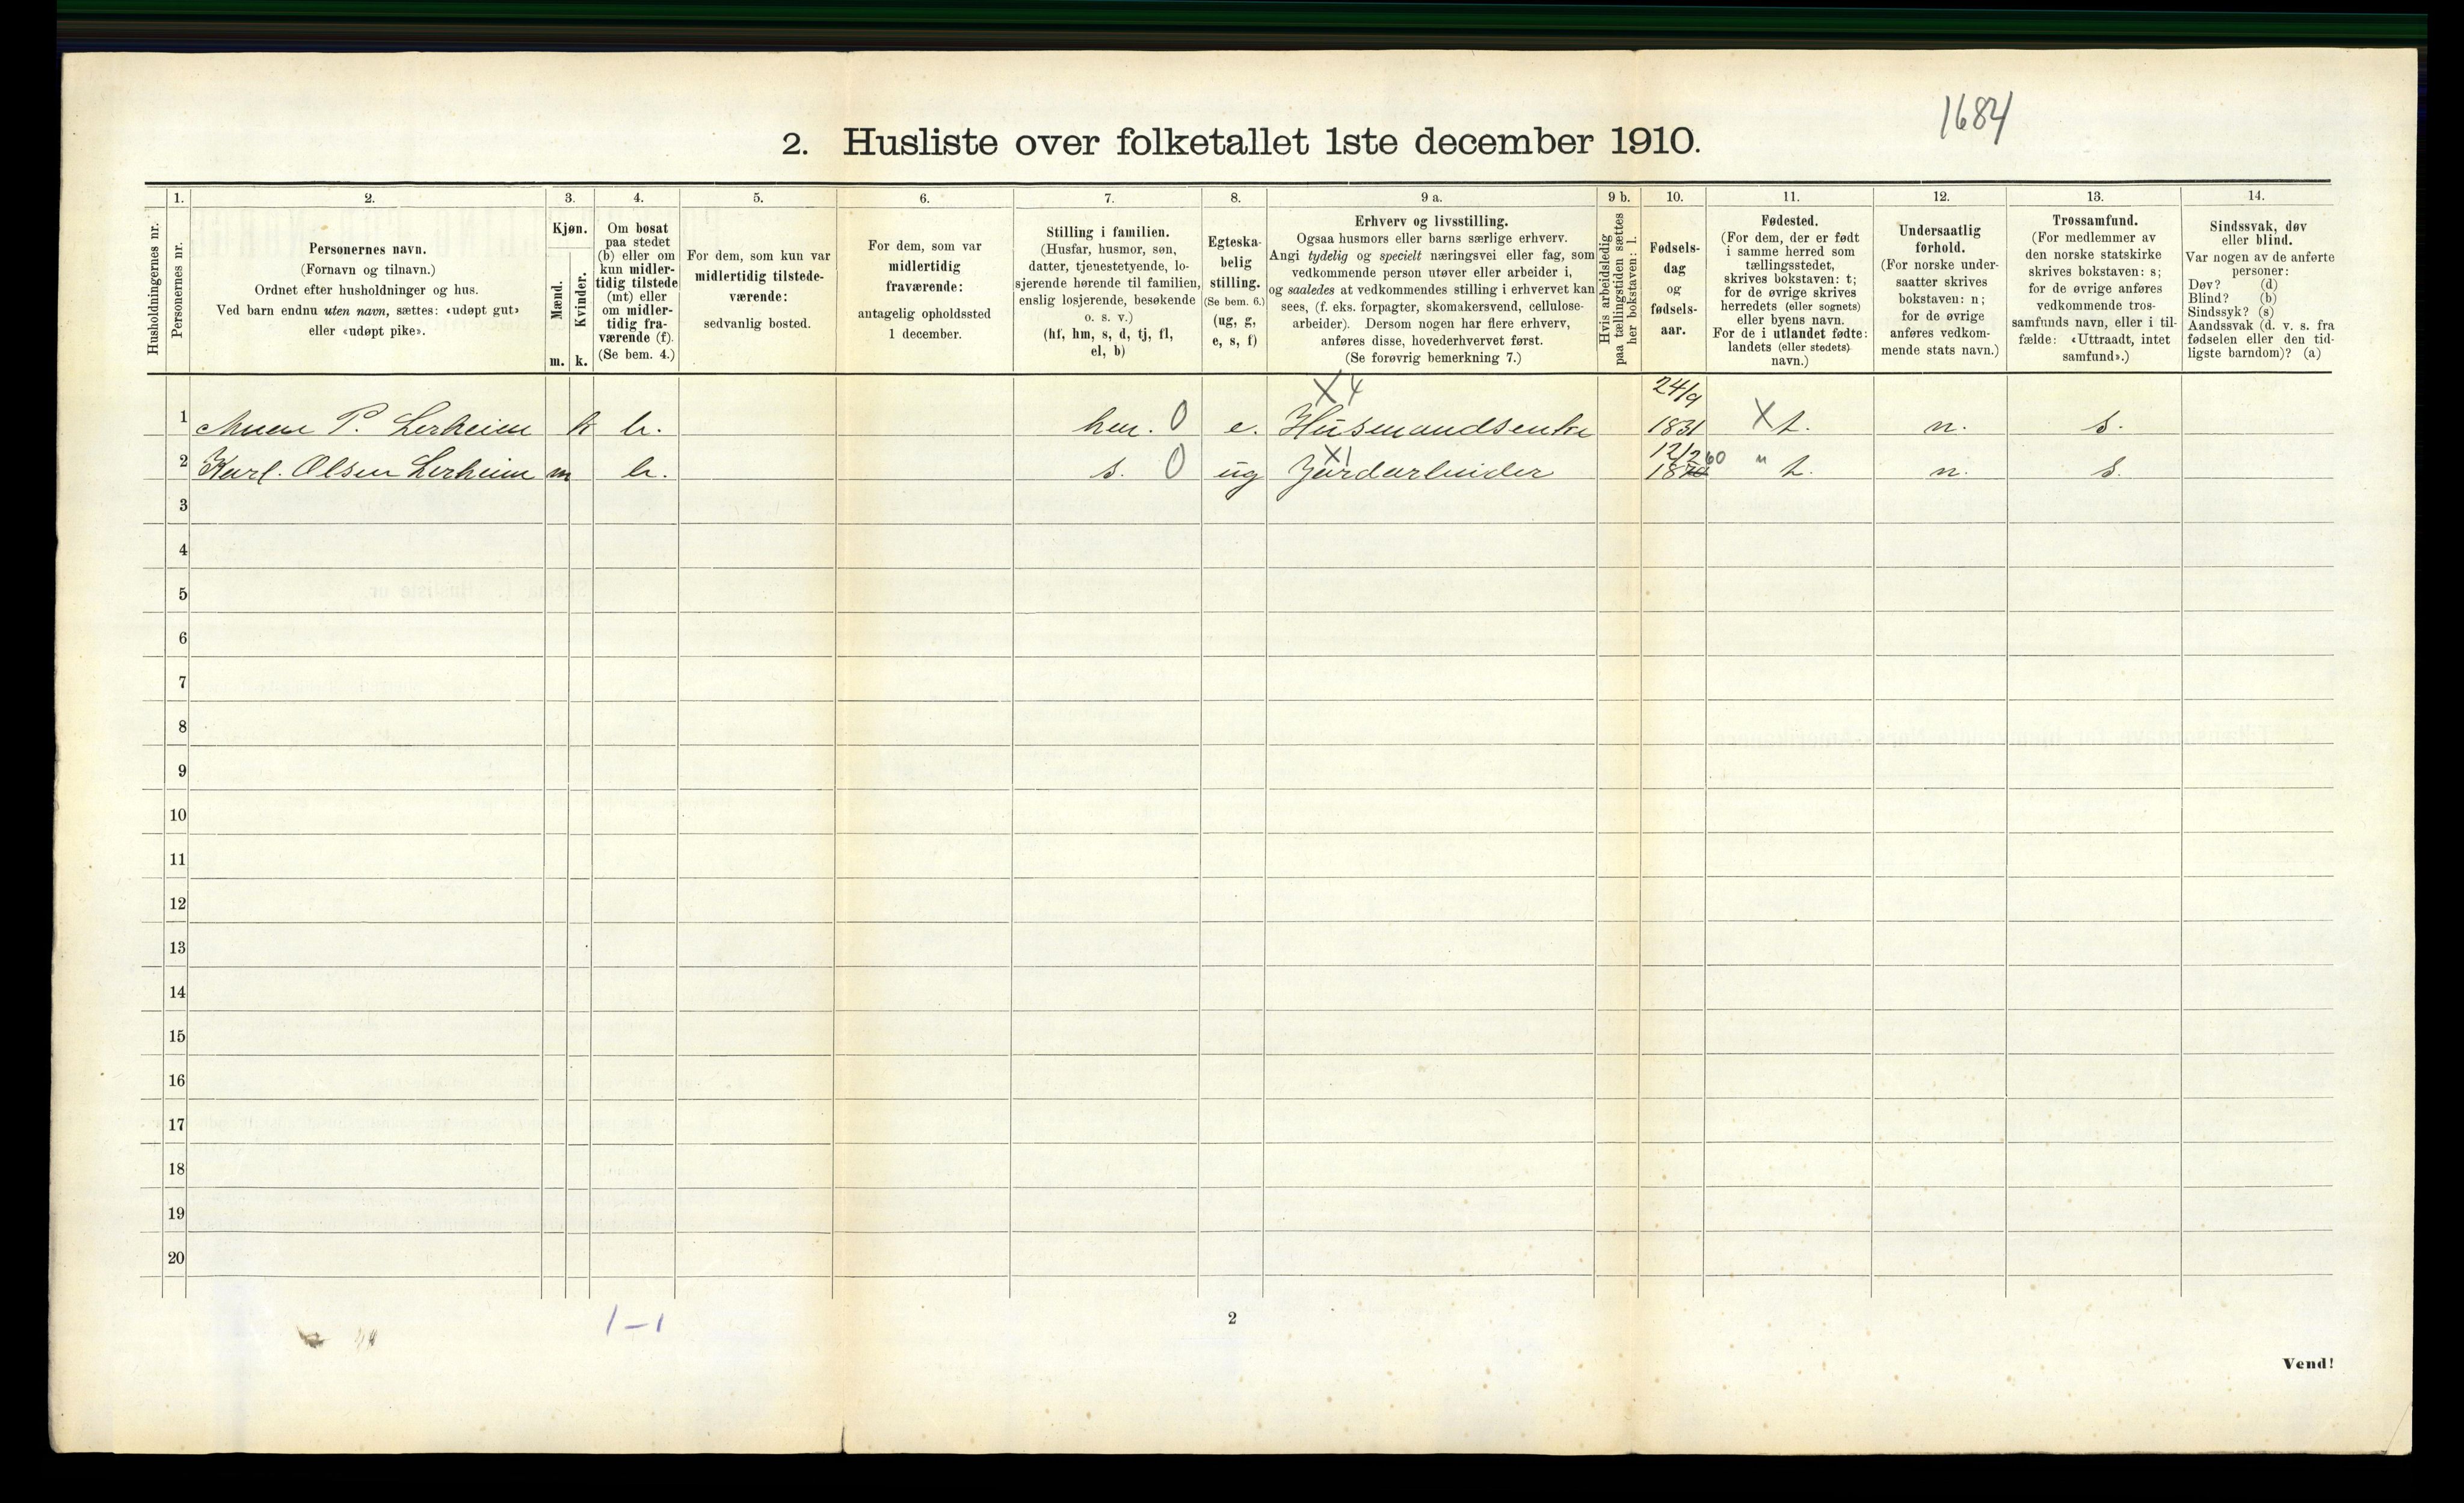 1684
2. Husliste over folketallet 1ste december 1910.
Husholdningernes nr.
1.
Personernes nr.
2.
Personernes navn.
(Fornavn og tilnavn.)
Ordnet efter husholdninger og hus.
Ved barn endnu uten navn, sættes: «udøpt gut»
eller «udøpt pike».
3.
Kjøn.
Mænd.
Kvinder.
m. k.
4.
Om bosat
paa stedet
(b) eller om
kun midler-
tidig tilstede
(mt) eller
om midler-
tidig fra-
værende (f).
(Se bem. 4.)
5.
For dem, som kun var
midlertidig tilstede-
værende:
sedvanlig bosted.
6.
For dem, som var
midlertidig
fraværende:
antagelig opholdssted
1 december.
7.
Stilling i familien.
(Husfar, husmor, søn,
datter, tjenestetyende, lo-
sjerende hørende til familien,
enslig losjerende, besøkende
o. s. v.)
(hf, hm, s, d, tj, fl,
el, b)
8.
Egteska-
belig
stilling.
(Se bem. 6.)
(ug, g,
e, s, f)
9 a.
Erhverv og livsstilling.
Ogsaa husmors eller barns særlige erhverv.
Angi tydelig og specielt næringsvei eller fag, som
vedkommende person utøver eller arbeider i,
og saaledes at vedkommendes stilling i erhvervet kan
sees, (f. eks. forpagter, skomakersvend, cellulose-
arbeider). Dersom nogen har flere erhverv,
anføres disse, hovederhvervet først.
(Se forøvrig bemerkning 7.)
9 b.
Hvis arbeidsledig
paa tællingstiden sættes
her bokstaven: l.
10.
Fødsels-
dag
og
fødsels-
aar.
11.
Fødested.
(For dem, der er født
i samme herred som
tællingsstedet,
skrives bokstaven: t;
for de øvrige skrives
herredets (eller sognets)
eller byens navn.
For de i utlandet fødte:
landets (eller stedets)
navn.)
12.
Undersaatlig
forhold.
(For norske under-
saatter skrives
bokstaven: n;
for de øvrige
anføres vedkom-
mende stats navn.)
13.
Trossamfund.
(For medlemmer av
den norske statskirke
skrives bokstaven: s;
for de øvrige anføres
vedkommende tros-
samfunds navn, eller i til-
fælde: «Uttraadt, intet
samfund».)
14.
Sindssvak, døv
eller blind.
Var nogen av de anførte
personer:
Døv? (d)
Blind? (b)
Sindssyk? (s)
Aandssvak (d. v. s. fra
fødselen eller den tid-
ligste barndom)? (a)
X 4 24/9
1 P. Lerheim k b. hm. 0 e. Husmandsenke 1831 X t. n. s.
X1 12/2 60
2 Karl. Olsen Lerheim m b. s. 0 ug Jordarbeider 1870 " t. n. s.
3
4
5
6
7
8
9
10
11
12
13
14
15
16
17
18
19
20
1 – 1
2
Vend!